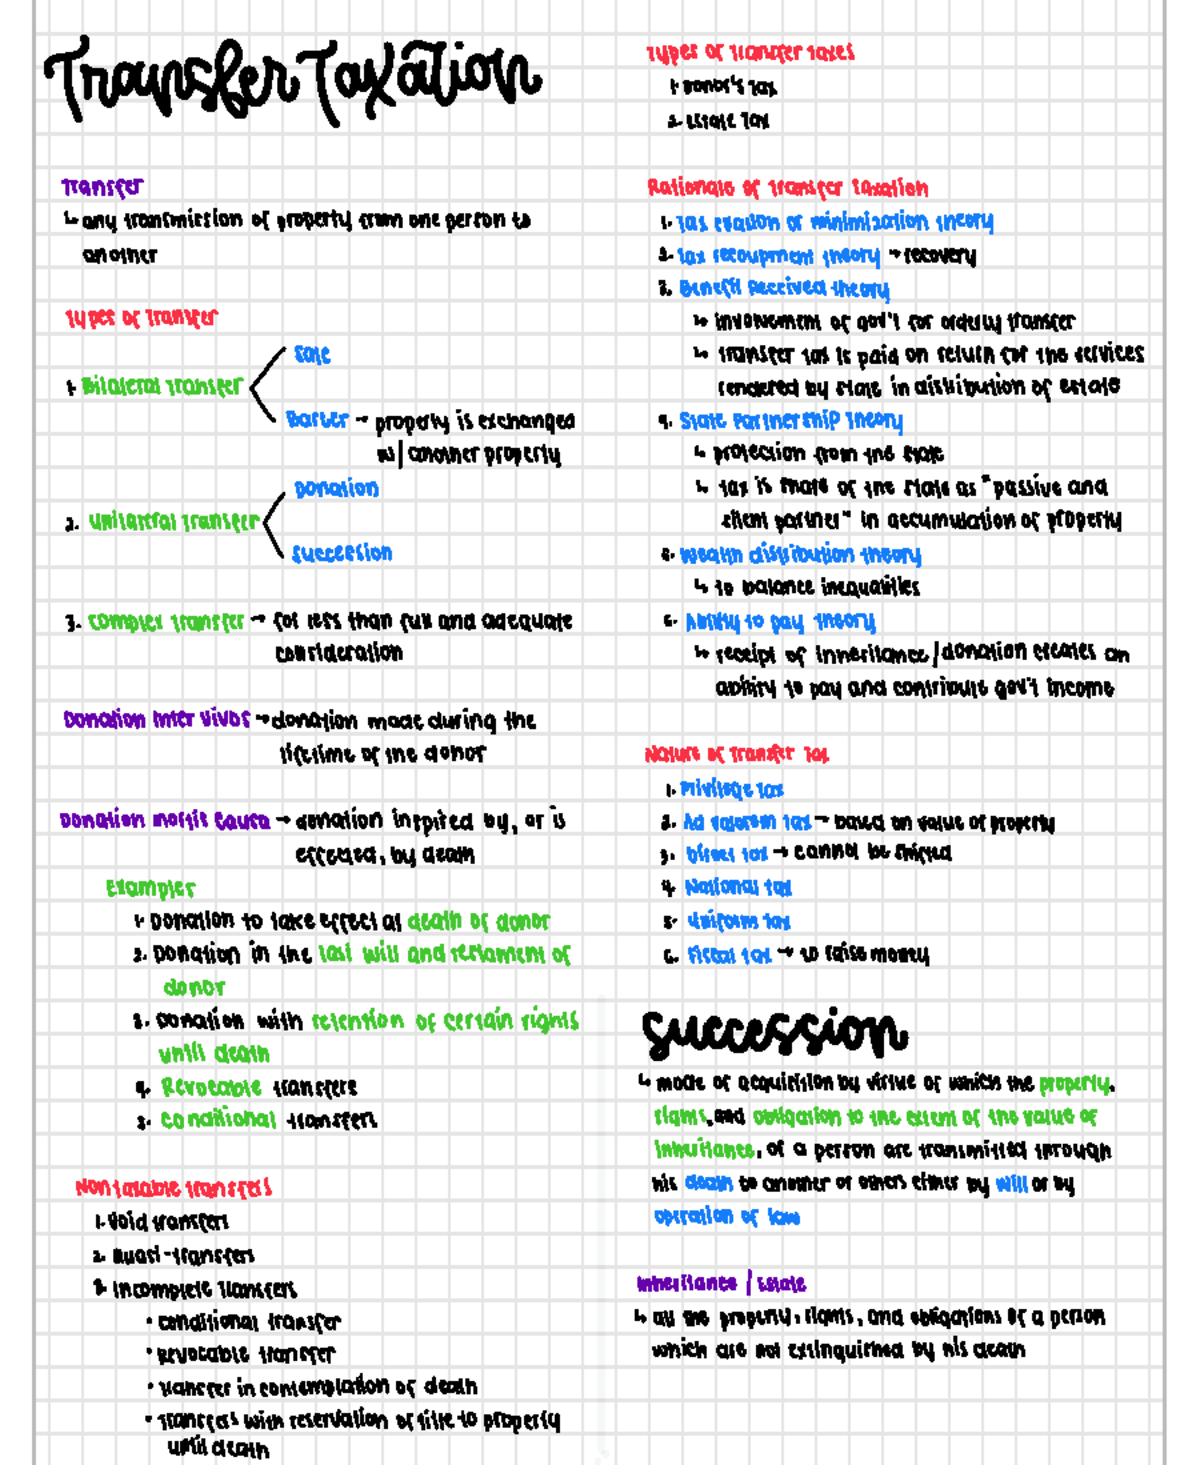 Transfer Taxation
Transfer
↳ any transmission of property from one person to
another
Types of Transfer
1. Bilateral Transfer
Sale
Barter → property is exchanged
w/ another property
2. Unilateral Transfer
Donation
Succession
3. Complex Transfer → for less than full and adequate
consideration
Donation Inter Vivos → donation made during the
lifetime of the donor
Donation Mortis Causa → donation inspired by, or is
effected, by death
Examples
1. Donation to take effect at death of donor
2. Donation in the last will and testament of
donor
3. Donation with retention of certain rights
until death
4. Revocable transfers
5. Conditional transfers
Non taxable transfers
1. Void transfers
2. Quasi-transfers
3. Incomplete Transfers
• Conditional transfer
• Revocable transfer
• Transfer in contemplation of death
• Transfers with reservation of title to property
until death
Types of Transfer Taxes
1. Donor's Tax
2. Estate Tax
Rationale of Transfer Taxation
1. Tax evasion or minimization theory
2. Tax recoupment theory → recovery
3. Benefit Received theory
↳ involvement of gov't for orderly transfer
↳ transfer tax is paid on return for the services
rendered by state in distribution of estate
4. State Partnership Theory
↳ protection from the state
↳ tax is share of the state as "passive and
silent partner" in accumulation of property
5. Wealth distribution theory
↳ to balance inequalities
6. Ability to pay theory
↳ receipt of inheritance/donation creates an
ability to pay and contribute gov't income
Nature of Transfer Tax
1. Privilege tax
2. Ad valorem tax → based on value of property
3. Direct tax → cannot be shifted
4. National tax
5. Uniform tax
6. Fiscal tax → to raise money
Succession
↳ mode of acquisition by virtue of which the property,
rights, and obligation to the extent of the value of
inheritance, of a person are transmitted through
his death to another or others either by will or by
operation of law
Inheritance / Estate
↳ all the property, rights, and obligations of a person
which are not extinguished by his death